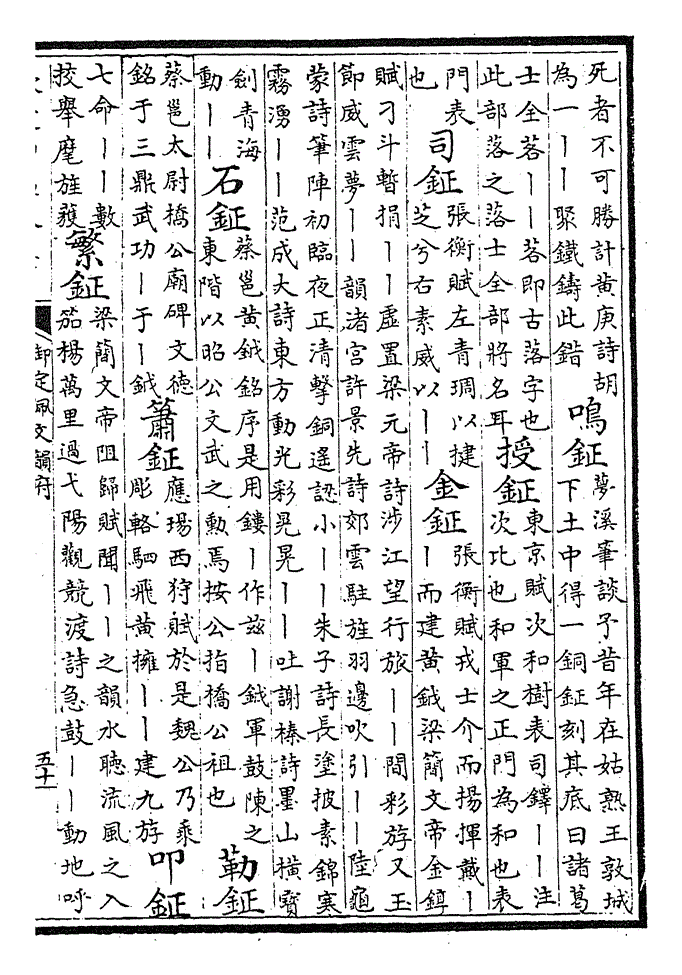 死者不可勝計黃庚詩胡
為一丨丨聚鐵鑄此錯
鳴鉦
夢溪筆談予昔年在姑熟王敦城
下土中得一銅鉦刻其底曰諸葛
士全茖丨丨茖即古落字也
此部落之落士全部將名耳
授鉦
東京賦次和樹表司鐸丨丨注
次比也和軍之正門為和也表
門表
也
司鉦
張衡賦左青琱以揵
芝兮右素威以丨丨
金鉦
張衡賦戎士介而揚揮戴丨
丨而建黃鉞梁簡文帝金錞
賦刁斗暫捐丨丨虛置梁元帝詩涉江望行旅丨丨間彩斿又玉
節威雲夢丨丨韻渚宮許景先詩郊雲駐旌羽邊吹引丨丨陸龜
蒙詩筆陣初臨夜正清擊銅遙認小丨丨朱子詩長塗披素錦寒
霧湧丨丨范成大詩東方動光彩晃晃丨丨吐謝榛詩墨山橫寶
劍青海
動丨丨
石鉦
蔡邕黃鉞銘序是用鏤丨作茲丨鉞軍鼓陳之
東階以昭公文武之勳焉按公指橋公祖也
勒鉦
蔡邕太尉橋公廟碑文德
銘于三鼎武功丨于丨鉞
簫鉦
應瑒西狩賦於是魏公乃乘
彫輅駟飛黃擁丨丨建九斿
叩鉦
七命丨丨數
校舉麾旌獲
繁鉦
梁簡文帝阻歸賦聞丨丨之韻水聽流風之入
笳楊萬里過弋陽觀競渡詩急鼓丨丨動地呼
御定佩文韻府
五十一